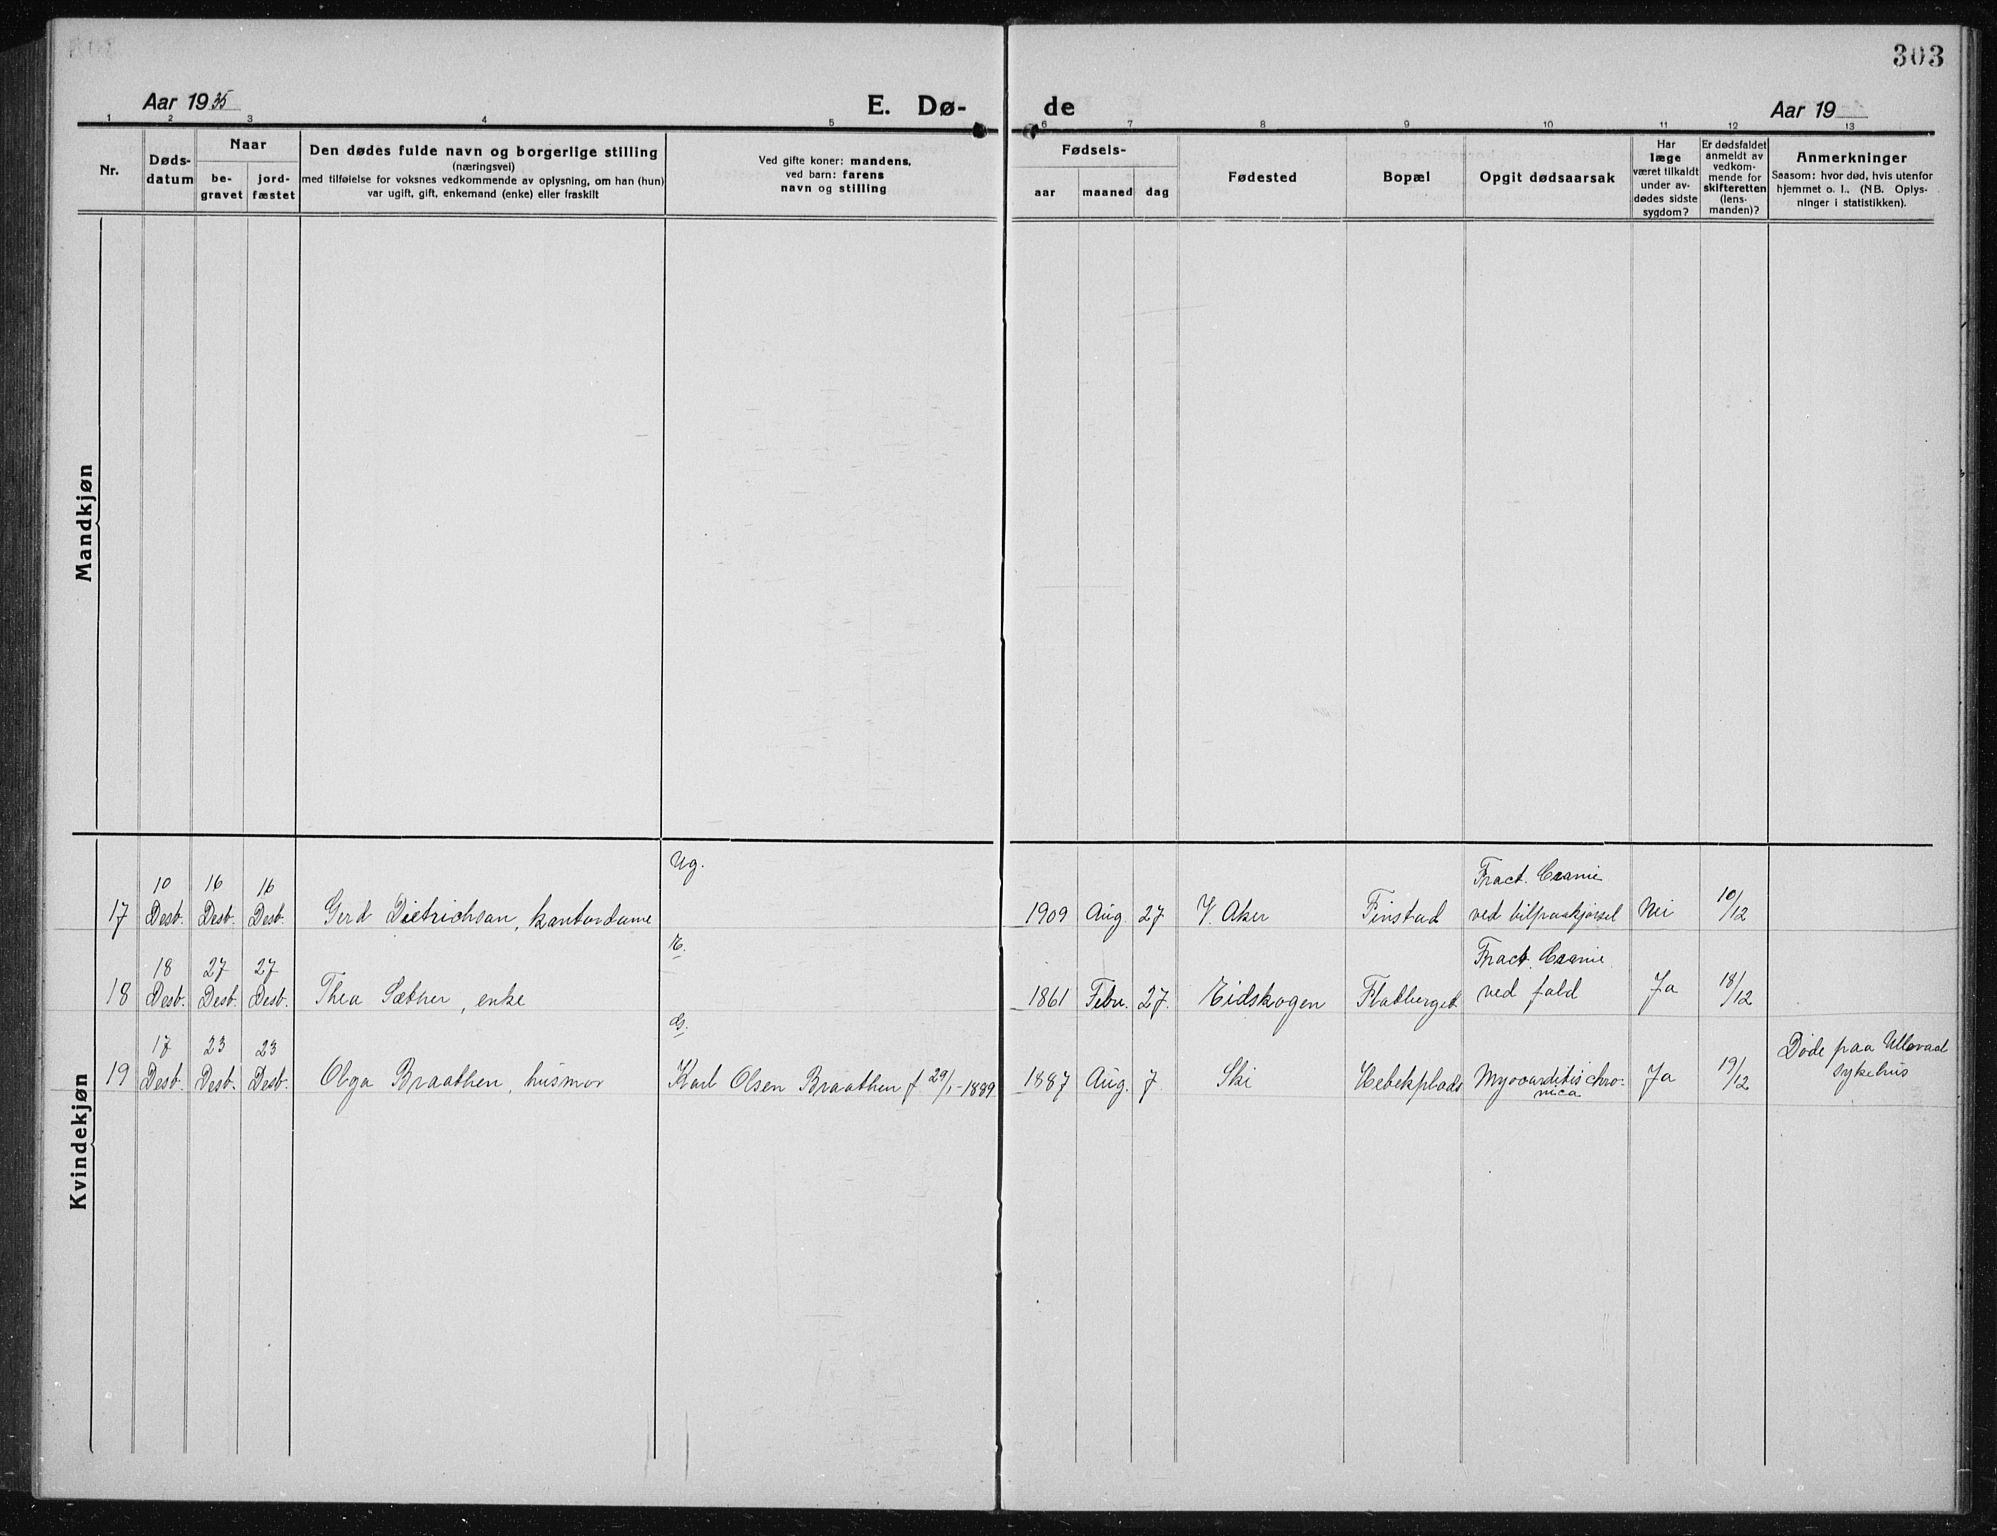 303
Aar 1935
E. Dø-
de
Aar 19
1 2 3 4 5 6 7 8 9 10 11 12 13
Nr.
Døds-
datum
Naar
be-
gravet
jord-
fæstet
Den dødes fulde navn og borgerlige stilling
(næringsvei)
med tilføielse for voksnes vedkommende av oplysning, om han (hun)
var ugift, gift, enkemand (enke) eller fraskilt
Ved gifte koner: mandens,
ved barn: farens
navn og stilling
Fødsels-
aar
maaned
dag
Fødested
Bopæl
Opgit dødsaarsak
Har
læge
været tilkaldt
under av-
dødes sidste
sygdom?
Er dødsfaldet
anmeldt av
vedkom-
mende for
skifteretten
(lens-
manden)?
Anmerkninger
Saasom: hvor død, hvis utenfor
hjemmet o. l., (NB. Oplys-
ninger i statistikken).
Mandkjøn
Kvindekjøn
Ug.
10 16 16 Fract. Cranie
17 Desb. Desb. Desb. Gerd Dietrichson, kontordame 1909 Aug. 27 V. Aker Finstad ved bilpaakjørsel Nei 10/12
E.
18 27 27 Fract. Cranie
18 Desb. Desb. Desb. Thea Sæther, enke 1861 Febr. 27. Eidskogen Flatberget ved fald Ja 18/12
G.
17 23 23 Døde paa Ullevaal
19 Desb. Desb. Desb. Olga Braathen, husmor Karl Olsen Braathen f. 29/1-1889 1887 Aug. 7. Ski Hebekplads Myocarditis chro- Ja 19/12 sykehus
nica